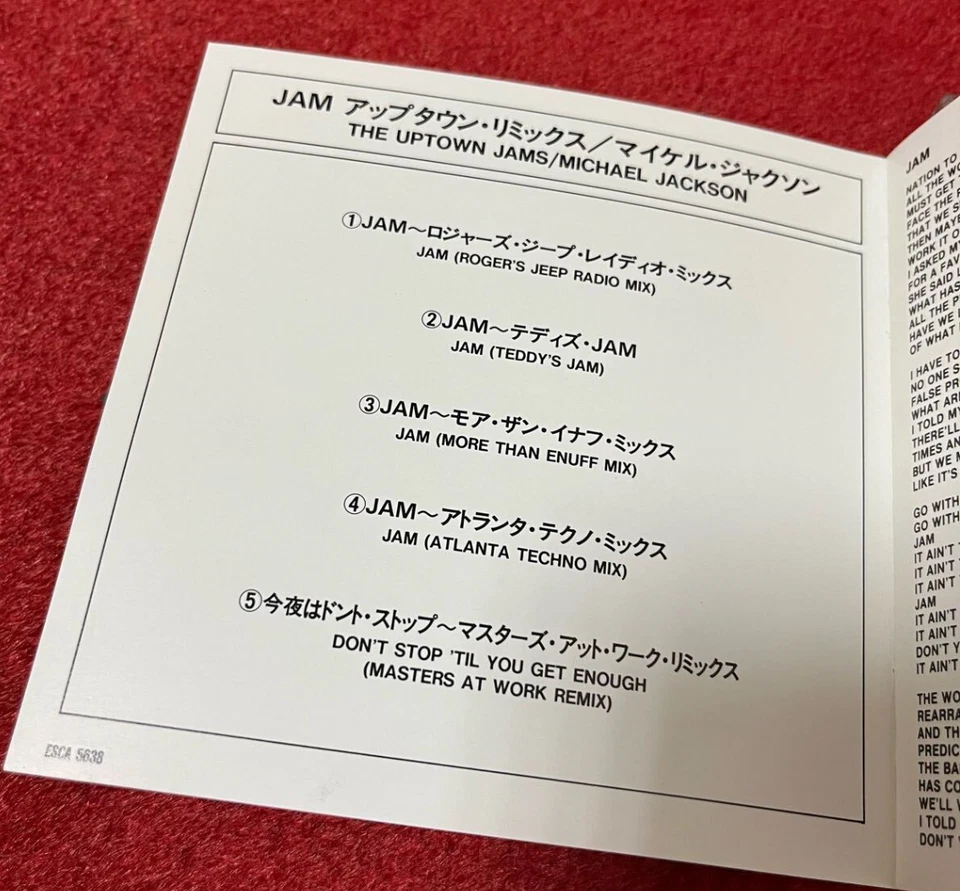 JAM アップタウン・リミックス／マイケル・ジャクソン
THE UPTOWN JAMS/MICHAEL JACKSON
①JAM〜ロジャーズ・ジープ・レイディオ・ミックス
JAM (ROGER'S JEEP RADIO MIX)
②JAM〜テディズ・JAM
JAM (TEDDY'S JAM)
③JAM〜モア・ザン・イナフ・ミックス
JAM (MORE THAN ENUFF MIX)
④JAM〜アトランタ・テクノ・ミックス
JAM (ATLANTA TECHNO MIX)
⑤今夜はドント・ストップ〜マスターズ・アット・ワーク・リミックス
DON'T STOP 'TIL YOU GET ENOUGH
(MASTERS AT WORK REMIX)
ESCA 5638
JAM
NATION TO
ALL THE
MUST GET
FACE THE
THAT WE
THEN
WORK IT
I ASKED
FOR A
SHE SAID
WHAT HAS
ALL THE
HAVE WE
OF WHAT
I HAVE TO
NO ONE
FALSE
WHAT
I TOLD
THERE'LL
TIMES
BUT WE
LIKE IT'S
GO WITH
GO WITH
JAM
IT AIN'T
IT AIN'T
IT AIN'T
JAM
IT AIN'T
IT AIN'T
DON'T
IT AIN'T
THE
AND
THE
HAS
WE'LL
I TOLD
DON'T